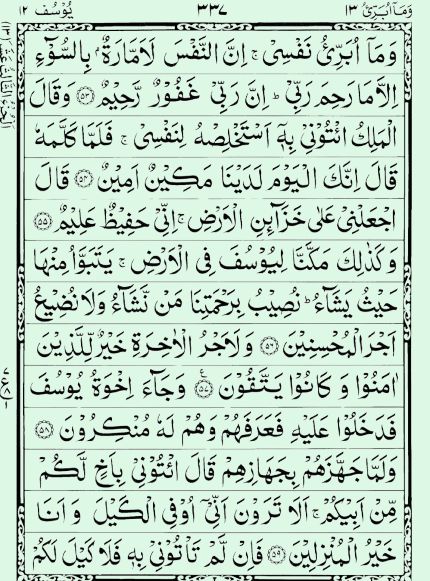 وَمَآ اُبَرِّئُ ١٣ ٣٣٧ يُوْسُف ١٢
وَمَآ اُبَرِّئُ نَفْسِىْ ۚ اِنَّ النَّفْسَ لَاَمَّارَةٌۢ بِالسُّوْٓءِ
اِلَّا مَا رَحِمَ رَبِّىْ ؕ اِنَّ رَبِّىْ غَفُوْرٌ رَّحِيْمٌ ﴿۵۳﴾ وَقَالَ
الْمَلِكُ ائْتُوْنِىْ بِهٖۤ اَسْتَخْلِصْهُ لِنَفْسِىْ ۚ فَلَمَّا كَلَّمَهٗ
قَالَ اِنَّكَ الْيَوْمَ لَدَيْنَا مَكِيْنٌ اَمِيْنٌ ﴿۵۴﴾ قَالَ
اجْعَلْنِىْ عَلٰى خَزَآئِنِ الْاَرْضِ ۚ اِنِّىْ حَفِيْظٌ عَلِيْمٌ ﴿۵۵﴾
وَكَذٰلِكَ مَكَّنَّا لِيُوْسُفَ فِى الْاَرْضِ ۚ يَتَبَوَّاُ مِنْهَا
حَيْثُ يَشَآءُ ؕ نُصِيْبُ بِرَحْمَتِنَا مَنْ نَّشَآءُ وَلَا نُضِيْعُ
اَجْرَ الْمُحْسِنِيْنَ ﴿۵۶﴾ وَلَاَجْرُ الْاٰخِرَةِ خَيْرٌ لِّلَّذِيْنَ
اٰمَنُوْا وَكَانُوْا يَتَّقُوْنَ ﴿۵۷﴾ ع وَجَآءَ اِخْوَةُ يُوْسُفَ
فَدَخَلُوْا عَلَيْهِ فَعَرَفَهُمْ وَهُمْ لَهٗ مُنْكِرُوْنَ ﴿۵۸﴾
وَلَمَّا جَهَّزَهُمْ بِجَهَازِهِمْ قَالَ ائْتُوْنِىْ بِاَخٍ لَّكُمْ
مِّنْ اَبِيْكُمْ ۚ اَلَا تَرَوْنَ اَنِّىْۤ اُوْفِى الْكَيْلَ وَاَنَا
خَيْرُ الْمُنْزِلِيْنَ ﴿۵۹﴾ فَاِنْ لَّمْ تَاْتُوْنِىْ بِهٖ فَلَا كَيْلَ لَكُمْ